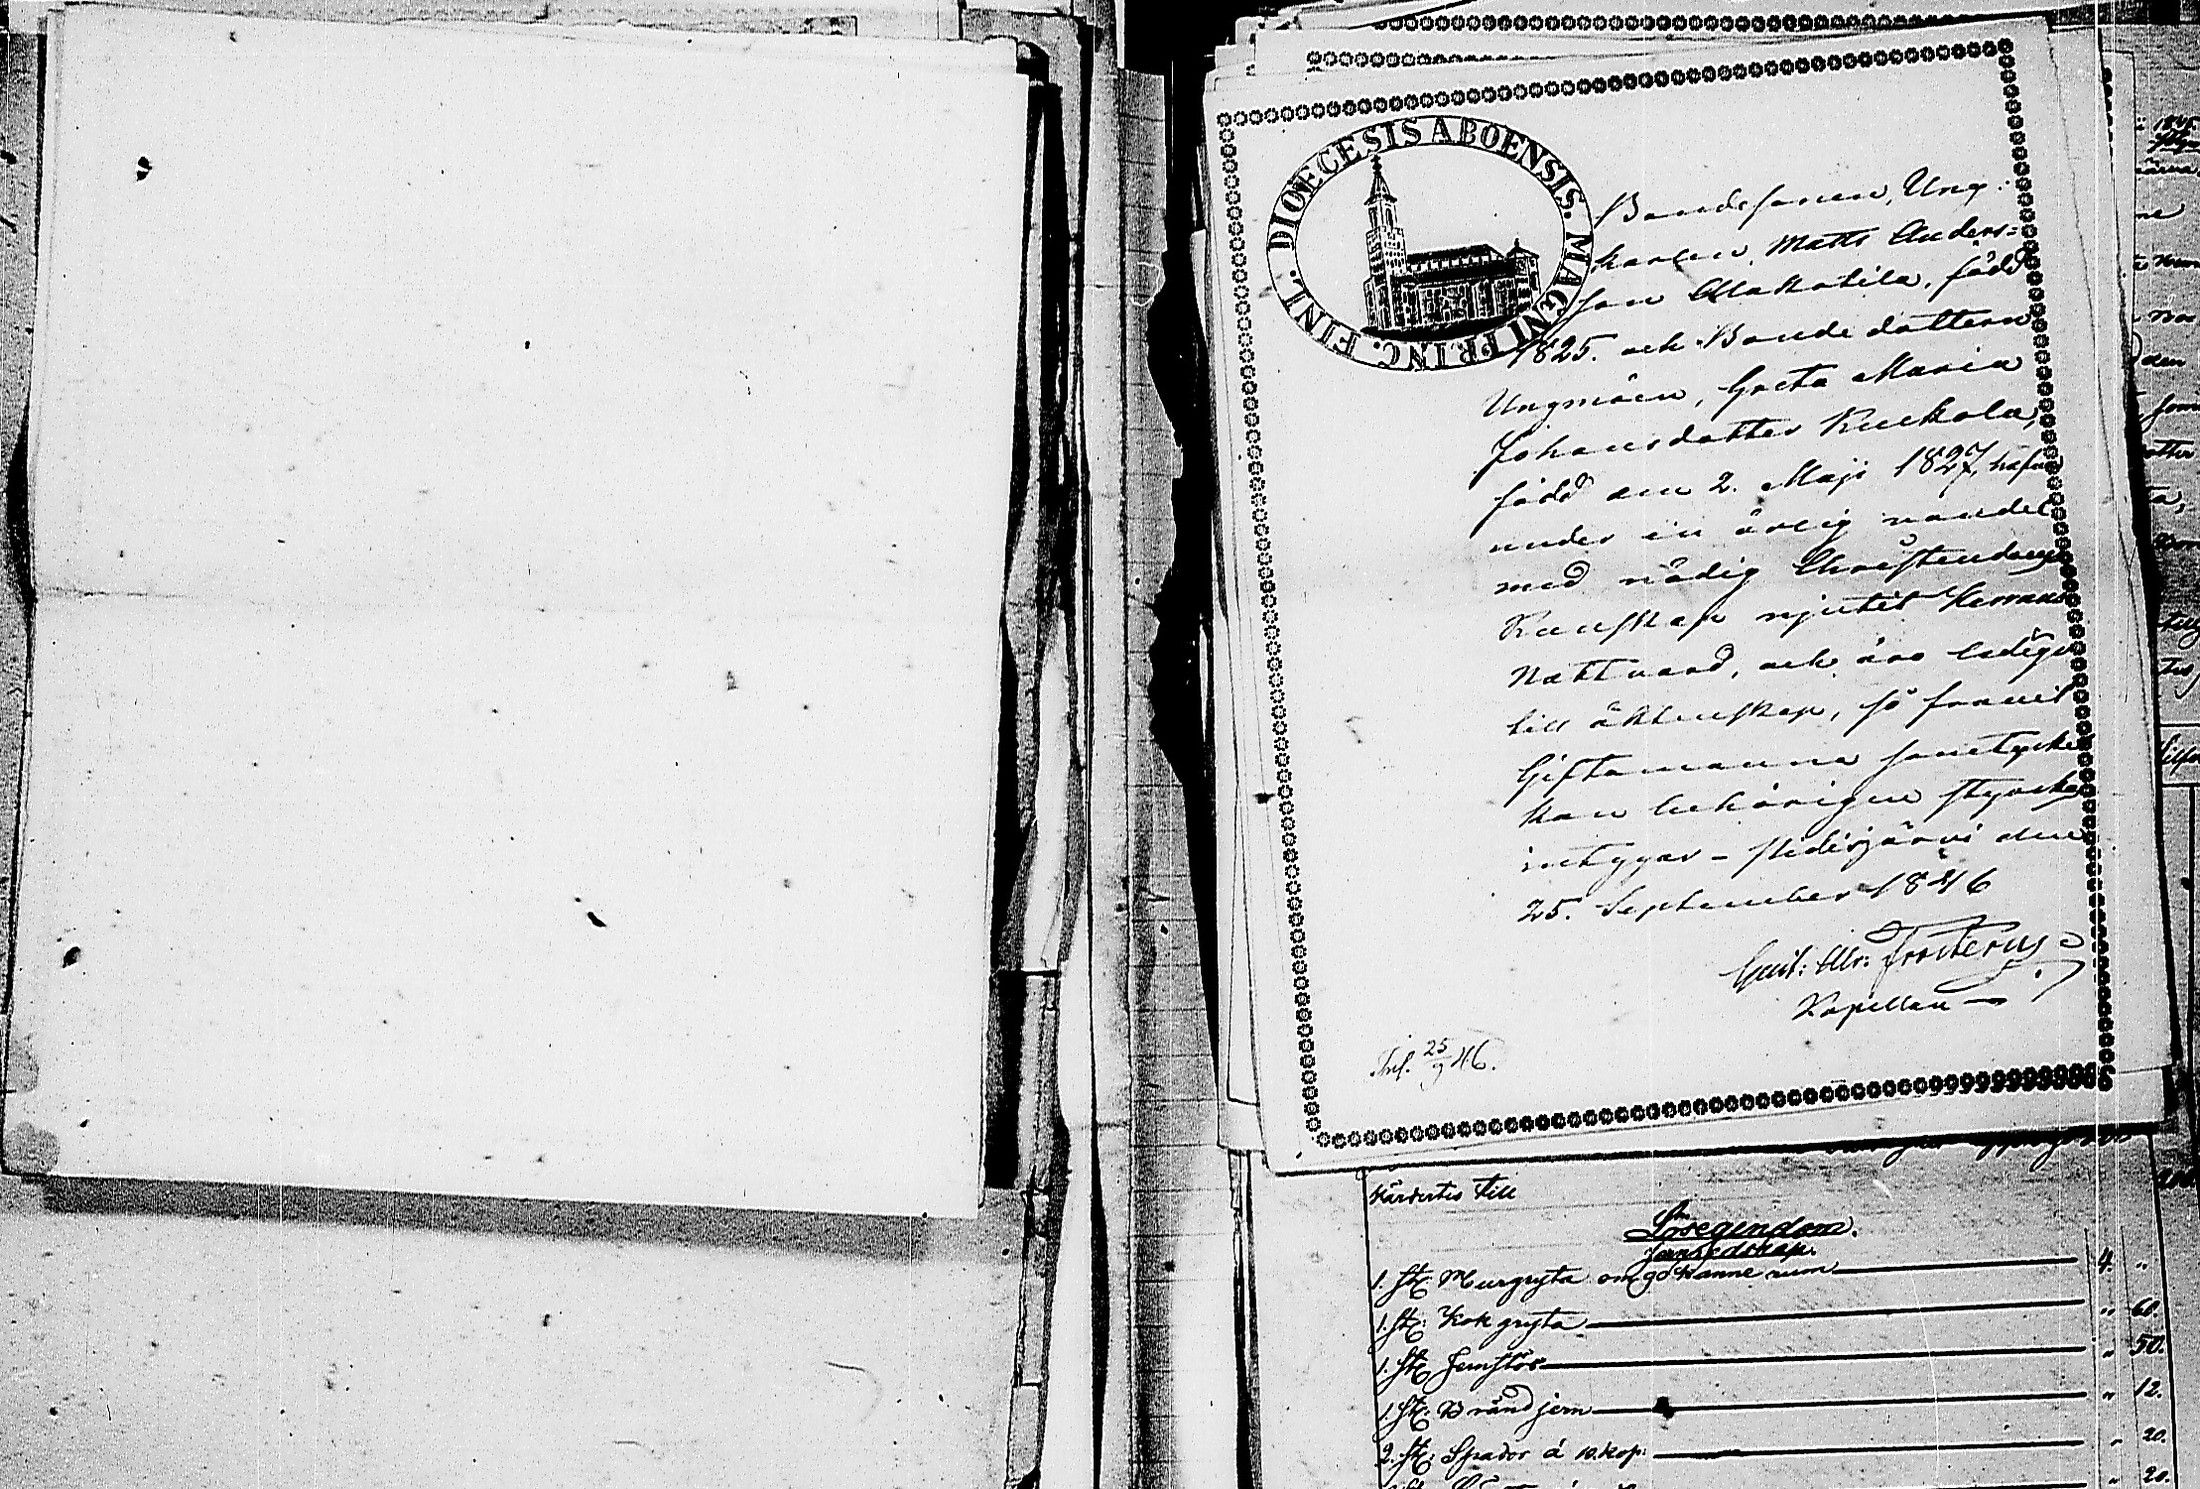 DIOECESIS ABOENSIS. MAGNI PRINC. FINL.
Bondesonen, Ung
karlen, Matts Anders=
son Alakotila, född
1825. och Bondedottern
Ungmöen, Greta Maria
Johansdotter Kuckola,
född den 2. Maji 1827, hafva
under en ärlig vandel
med nödig Christendoms
Kunskap njutit Herrans
Nattvard, och äro lediga
till äktenskap, så framt
Giftomanna samtycke
kan behörigen styrkas
intygar _ den
25. September 1846
Gust: Frosterus
Kapellan
25/9 46.
värdertes till
Lösegendom.
Jernredskap.
1. st: Murgryta om 90 kanne rum 4. "
1. st: Kokgryta " 60.
1. st: Jernstör " 50.
1. st: Brändjern " 12.
2. st: Spador á 10. kop: " 20.
" 20.